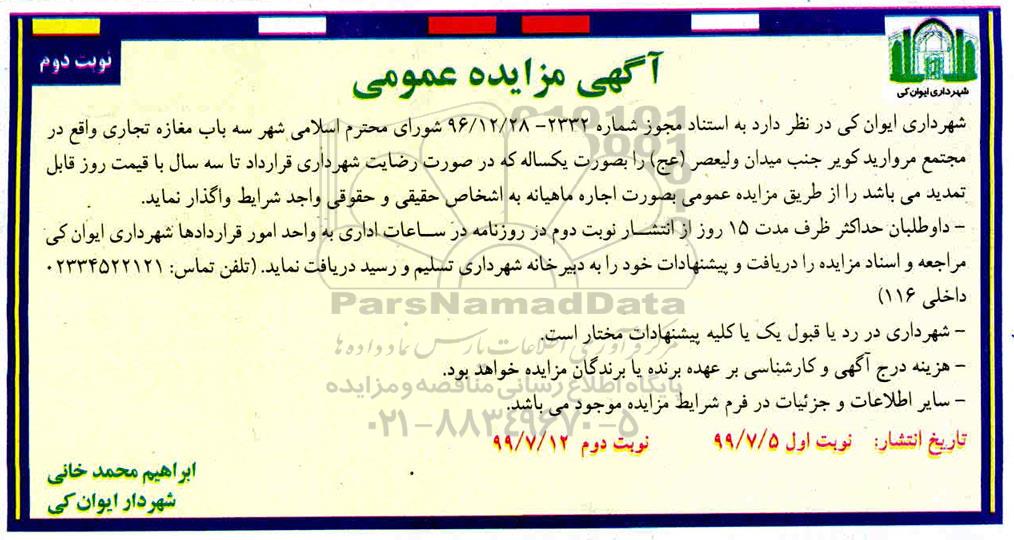 نوبت دوم
شهرداری ایوان کی
آگهی مزایده عمومی
شهرداری ایوان کی در نظر دارد به استناد مجوز شماره ۲۳۳۲- ۹۶/۱۲/۲۸ شورای محترم اسلامی شهر سه باب مغازه تجاری واقع در
مجتمع مروارید کویر جنب میدان ولیعصر (عج) را بصورت یکساله که در صورت رضایت شهرداری قرارداد تا سه سال با قیمت روز قابل
تمدید می باشد را از طریق مزایده عمومی بصورت اجاره ماهیانه به اشخاص حقیقی و حقوقی واجد شرایط واگذار نماید.
- داوطلبان حداکثر ظرف مدت ۱۵ روز از انتشار نوبت دوم در روزنامه در ساعات اداری به واحد امور قراردادها شهرداری ایوان کی
مراجعه و اسناد مزایده را دریافت و پیشنهادات خود را به دبیرخانه شهرداری تسلیم و رسید دریافت نماید. (تلفن تماس: ۰۲۳۳۴۵۲۲۱۲۱
داخلی ۱۱۶)
ParsNamadData
- شهرداری در رد یا قبول یک یا کلیه پیشنهادات مختار است.
مرکز فرآوری اطلاعات پارس نماد داده ها
- هزینه درج آگهی و کارشناسی بر عهده برنده یا برندگان مزایده خواهد بود.
پایگاه اطلاع رسانی مناقصه و مزایده
- سایر اطلاعات و جزئیات در فرم شرایط مزایده موجود می باشد.
۰۲۱-۸۸۳۴۹۶۷۰-۵
تاریخ انتشار: نوبت اول ۹۹/۷/۵ نوبت دوم ۹۹/۷/۱۲
ابراهیم محمد خانی
شهردار ایوان کی